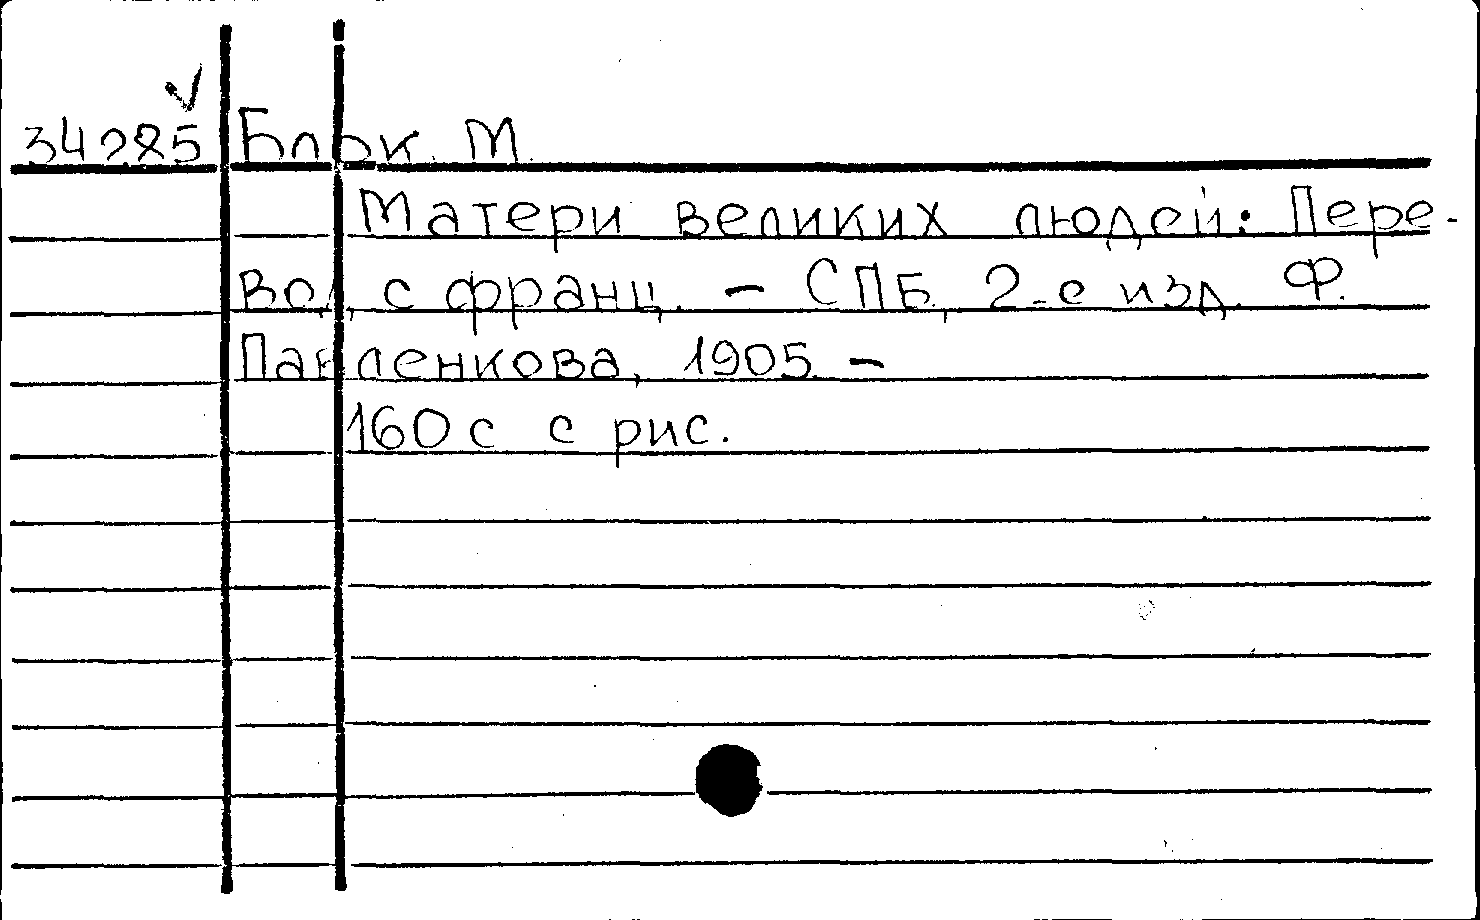 34285 Блок М.
Матери великих людей: Пере-
вод с франц. – СПБ, 2-е изд. Ф.
Павленкова, 1905 –
160 с с рис.